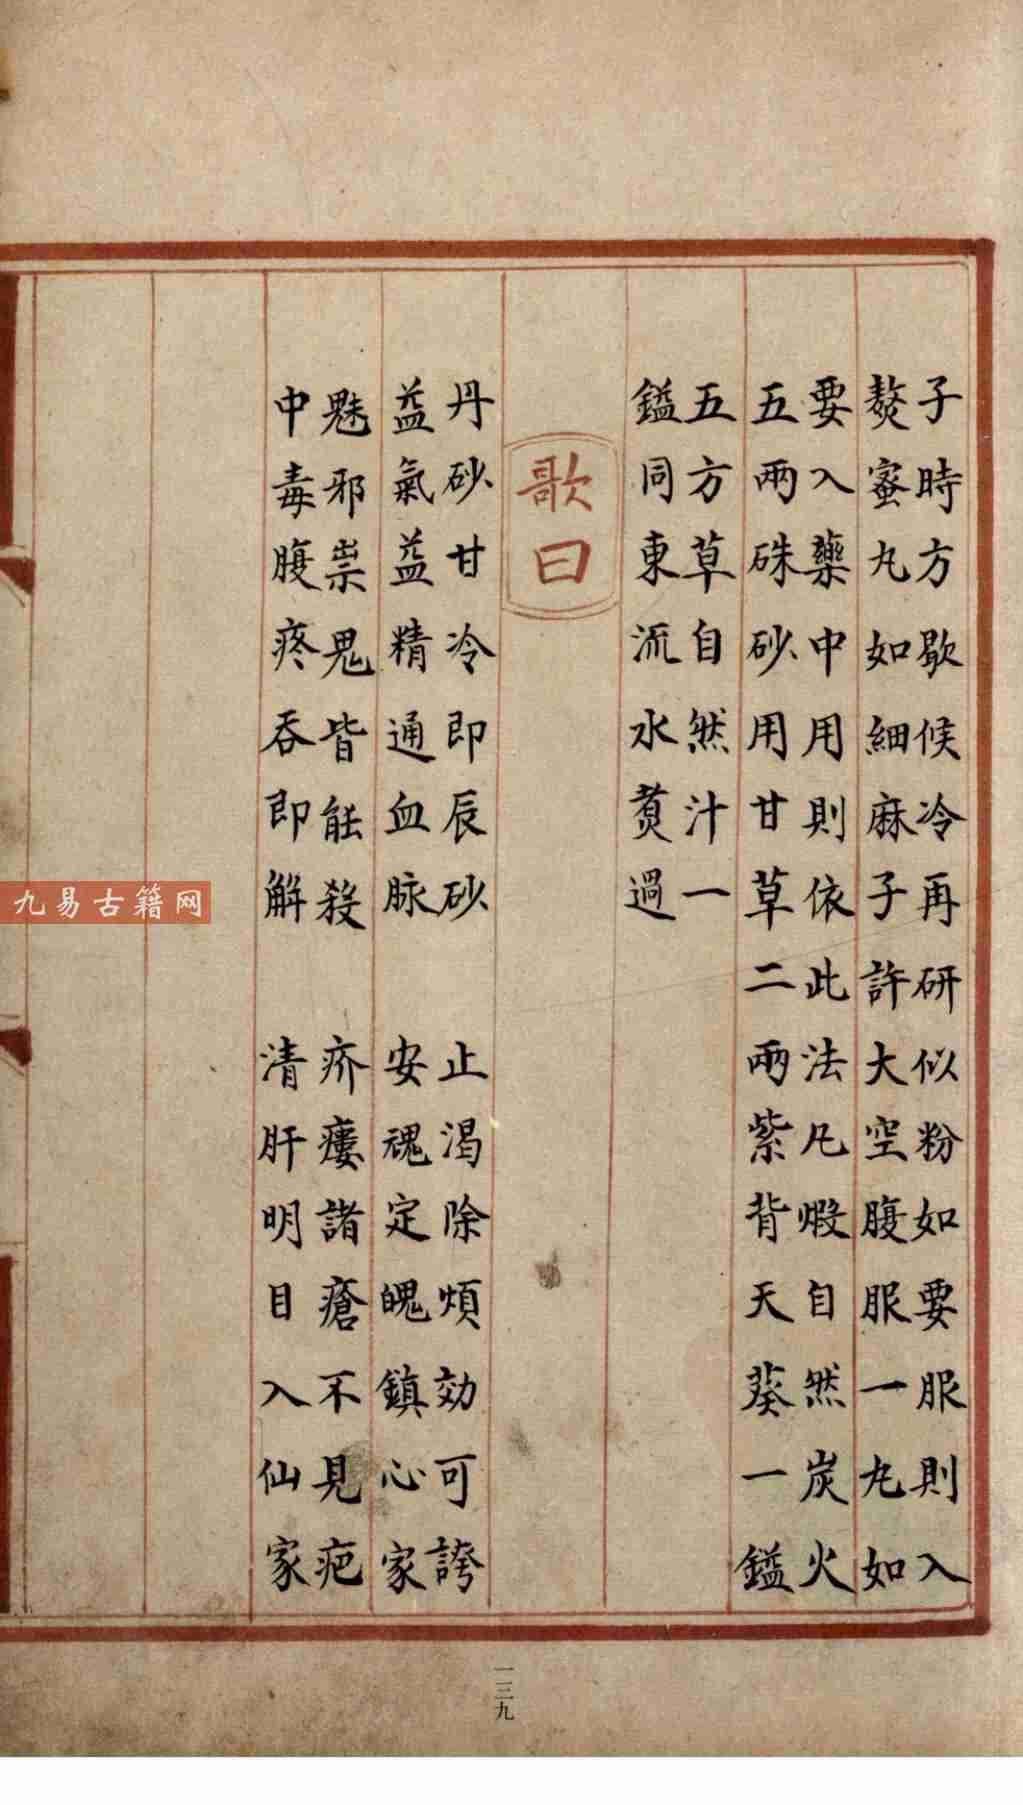 子時方歇候冷再研似粉如要服則入
熬蜜丸如細麻子許大空腹服一丸如
要入藥中用則依此法凡煅自然炭火
五兩硃砂用甘草二兩紫背天葵一鎰
五方草自然汁一
鎰同東流水煑過
歌曰
丹砂甘冷即辰砂　止渴除煩効可誇
益氣益精通血脉　安魂定魄鎮心家
魅邪祟鬼皆能殺　疥瘻諸瘡不見疤
中毒腹疼吞即解　清肝明目入仙家
一三九
九易古籍网